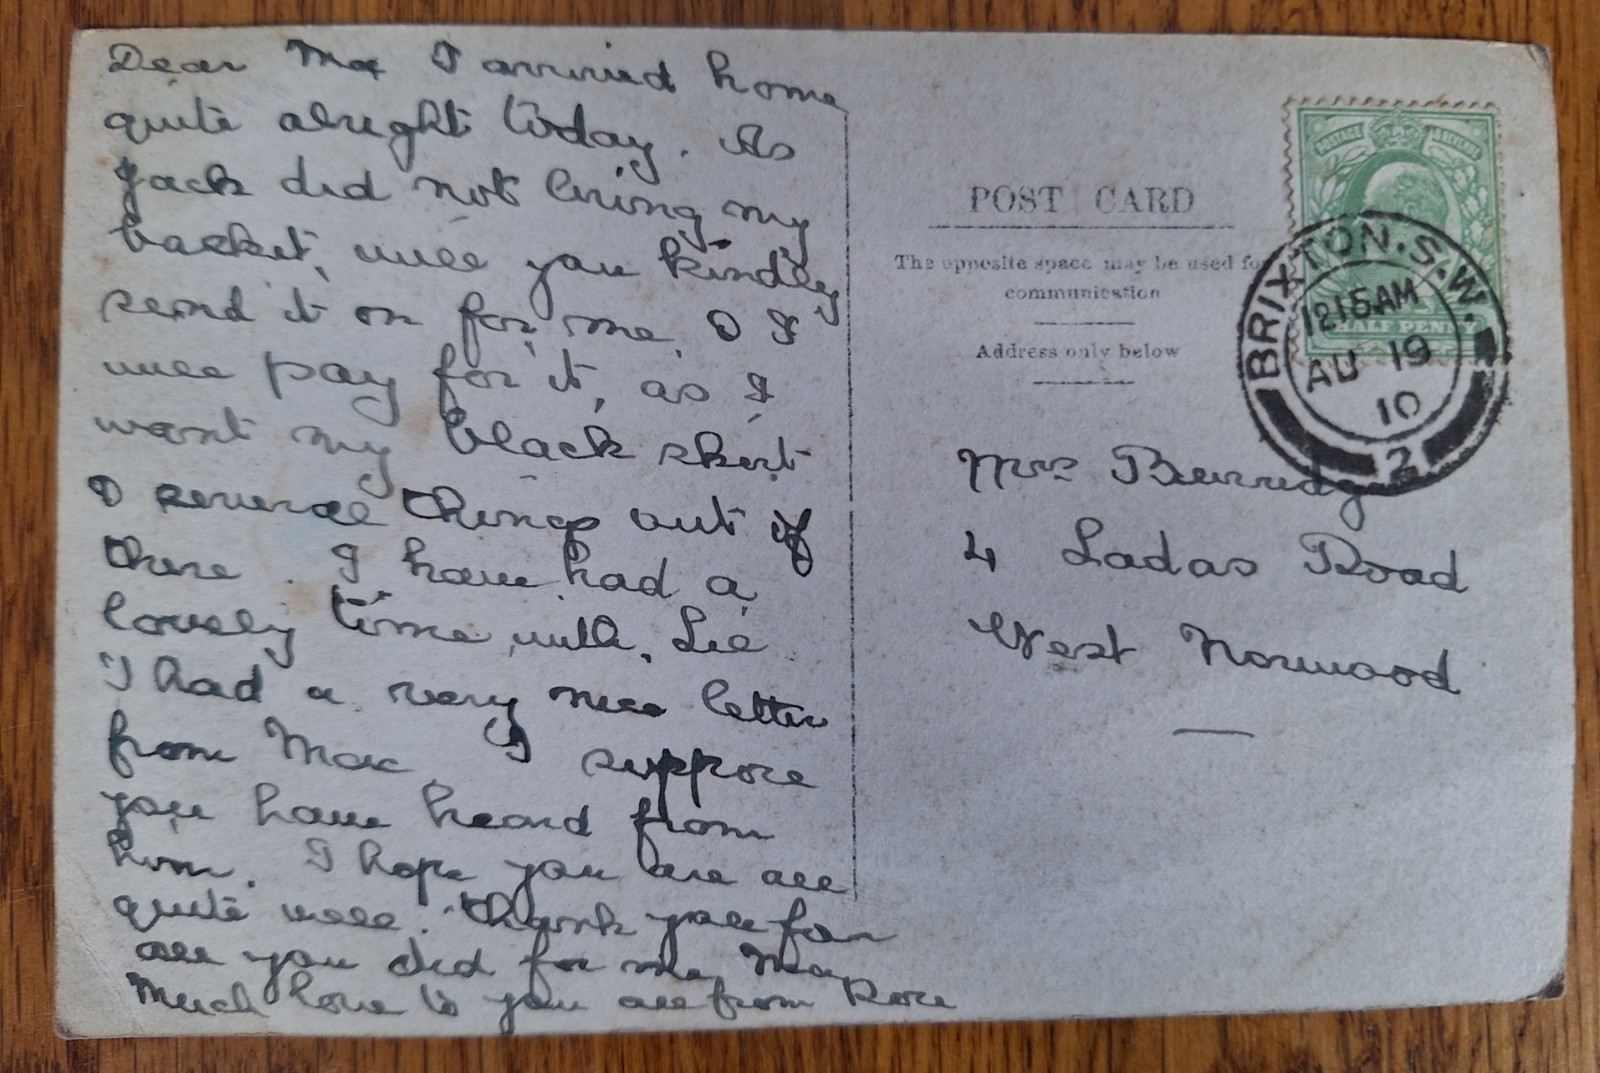 Dear May I arrived home
quite alright today. As
Jack did not bring my
basket, will you kindly
send it on for me, & I
will pay for it, as I
want my black skirt
& several things out of
there. I have had a
lovely time with. Lil
I had a very nice letter
from Max I suppose
you have heard from
him. I hope you are all
quite well. thank you for
all you did for me, May
Much love to you all from Rose
POST CARD
The opposite space may be used for
communication
Address only below
POSTAGE REVENUE
HALF PENNY
BRIXTON.S.W.
1215AM
AU 19
10
2
Mrs Berridg
4 Ladas Road
West Norwood